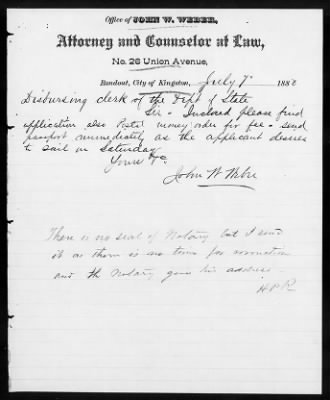 Office of JOHN W. WEBER,
Attorney and Counselor at Law,
No. 26 Union Avenue,
Rondout, City of Kingston, July 7 188
Disbursing clerk of the Dept of State
Sir - Inclosed please find
application also Postal money order for fee - send
passport immediately as the applicant desires
to sail on Saturday
Yours &c
John W Weber
There is no seal of Notary but I send
it as there is no time for
and the Notary gives his address -
H.P.R